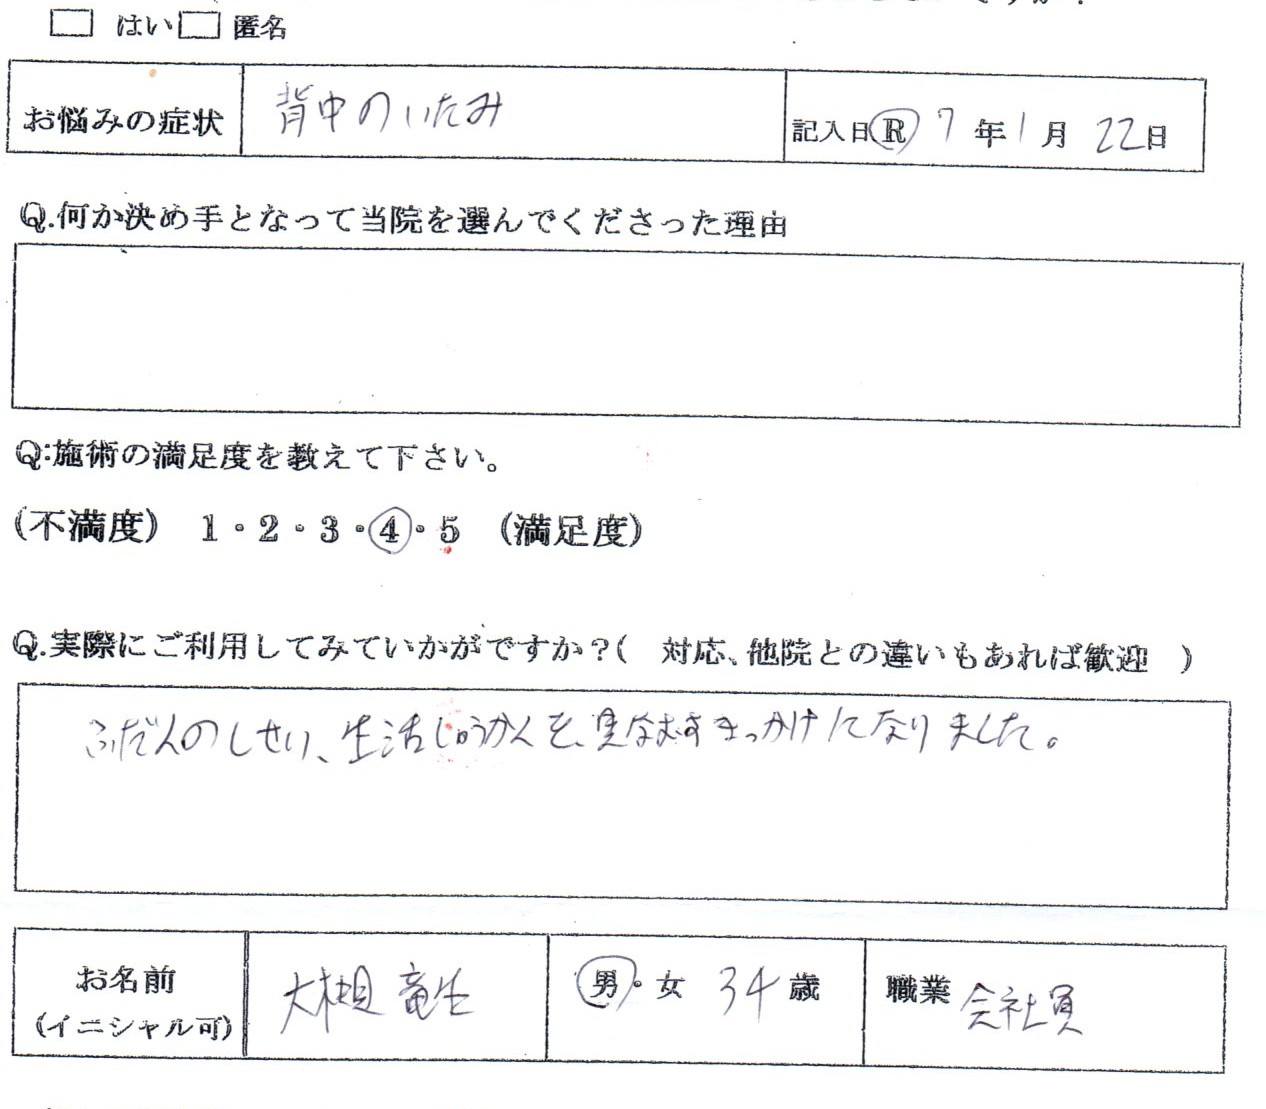 はい 匿名
お悩みの症状 背中のいたみ 記入日 R 7年1月22日
Q.何か決め手となって当院を選んでくださった理由
Q:施術の満足度を教えて下さい。
(不満度) 1・2・3・4・5 (満足度)
Q.実際にご利用してみていかがですか?( 対応、他院との違いもあれば歓迎 )
ふだんのしせい、生活しゅうかんを、見なおすきっかけになりました。
お名前 竜生 男・女 34歳 職業 会社員
(イニシャル可)